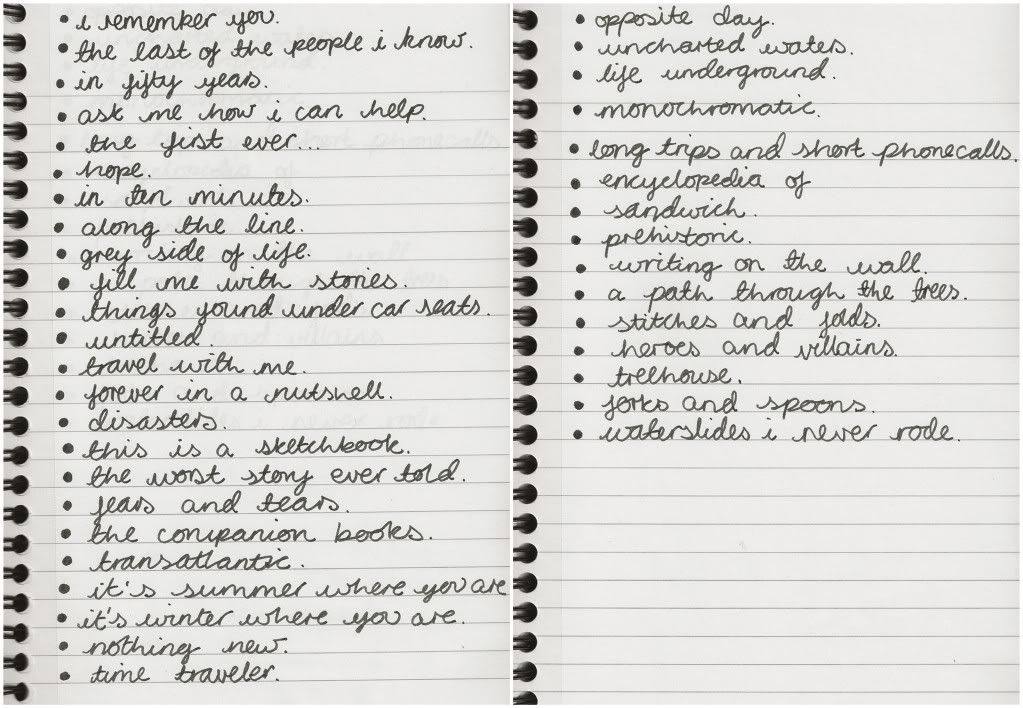 • i remember you.
• the last of the people i know.
• in fifty years.
• ask me how i can help.
• the first ever...
• hope.
• in ten minutes.
• along the line.
• grey side of life.
• fill me with stories.
• things yound under car seats.
• untitled.
• travel with me.
• forever in a nutshell.
• disasters.
• this is a sketchbook.
• the worst story ever told.
• fears and tears.
• the companion books.
• transatlantic.
• it's summer where you are
• it's winter where you are.
• nothing new.
• time traveler.
• opposite day.
• uncharted waters.
• life underground.
• monochromatic.
• long trips and short phonecalls.
• encyclopedia of
• sandwich.
• prehistoric.
• writing on the wall.
• a path through the trees.
• stitches and folds.
• heroes and villains.
• treehouse.
• forks and spoons.
• waterslides i never rode.